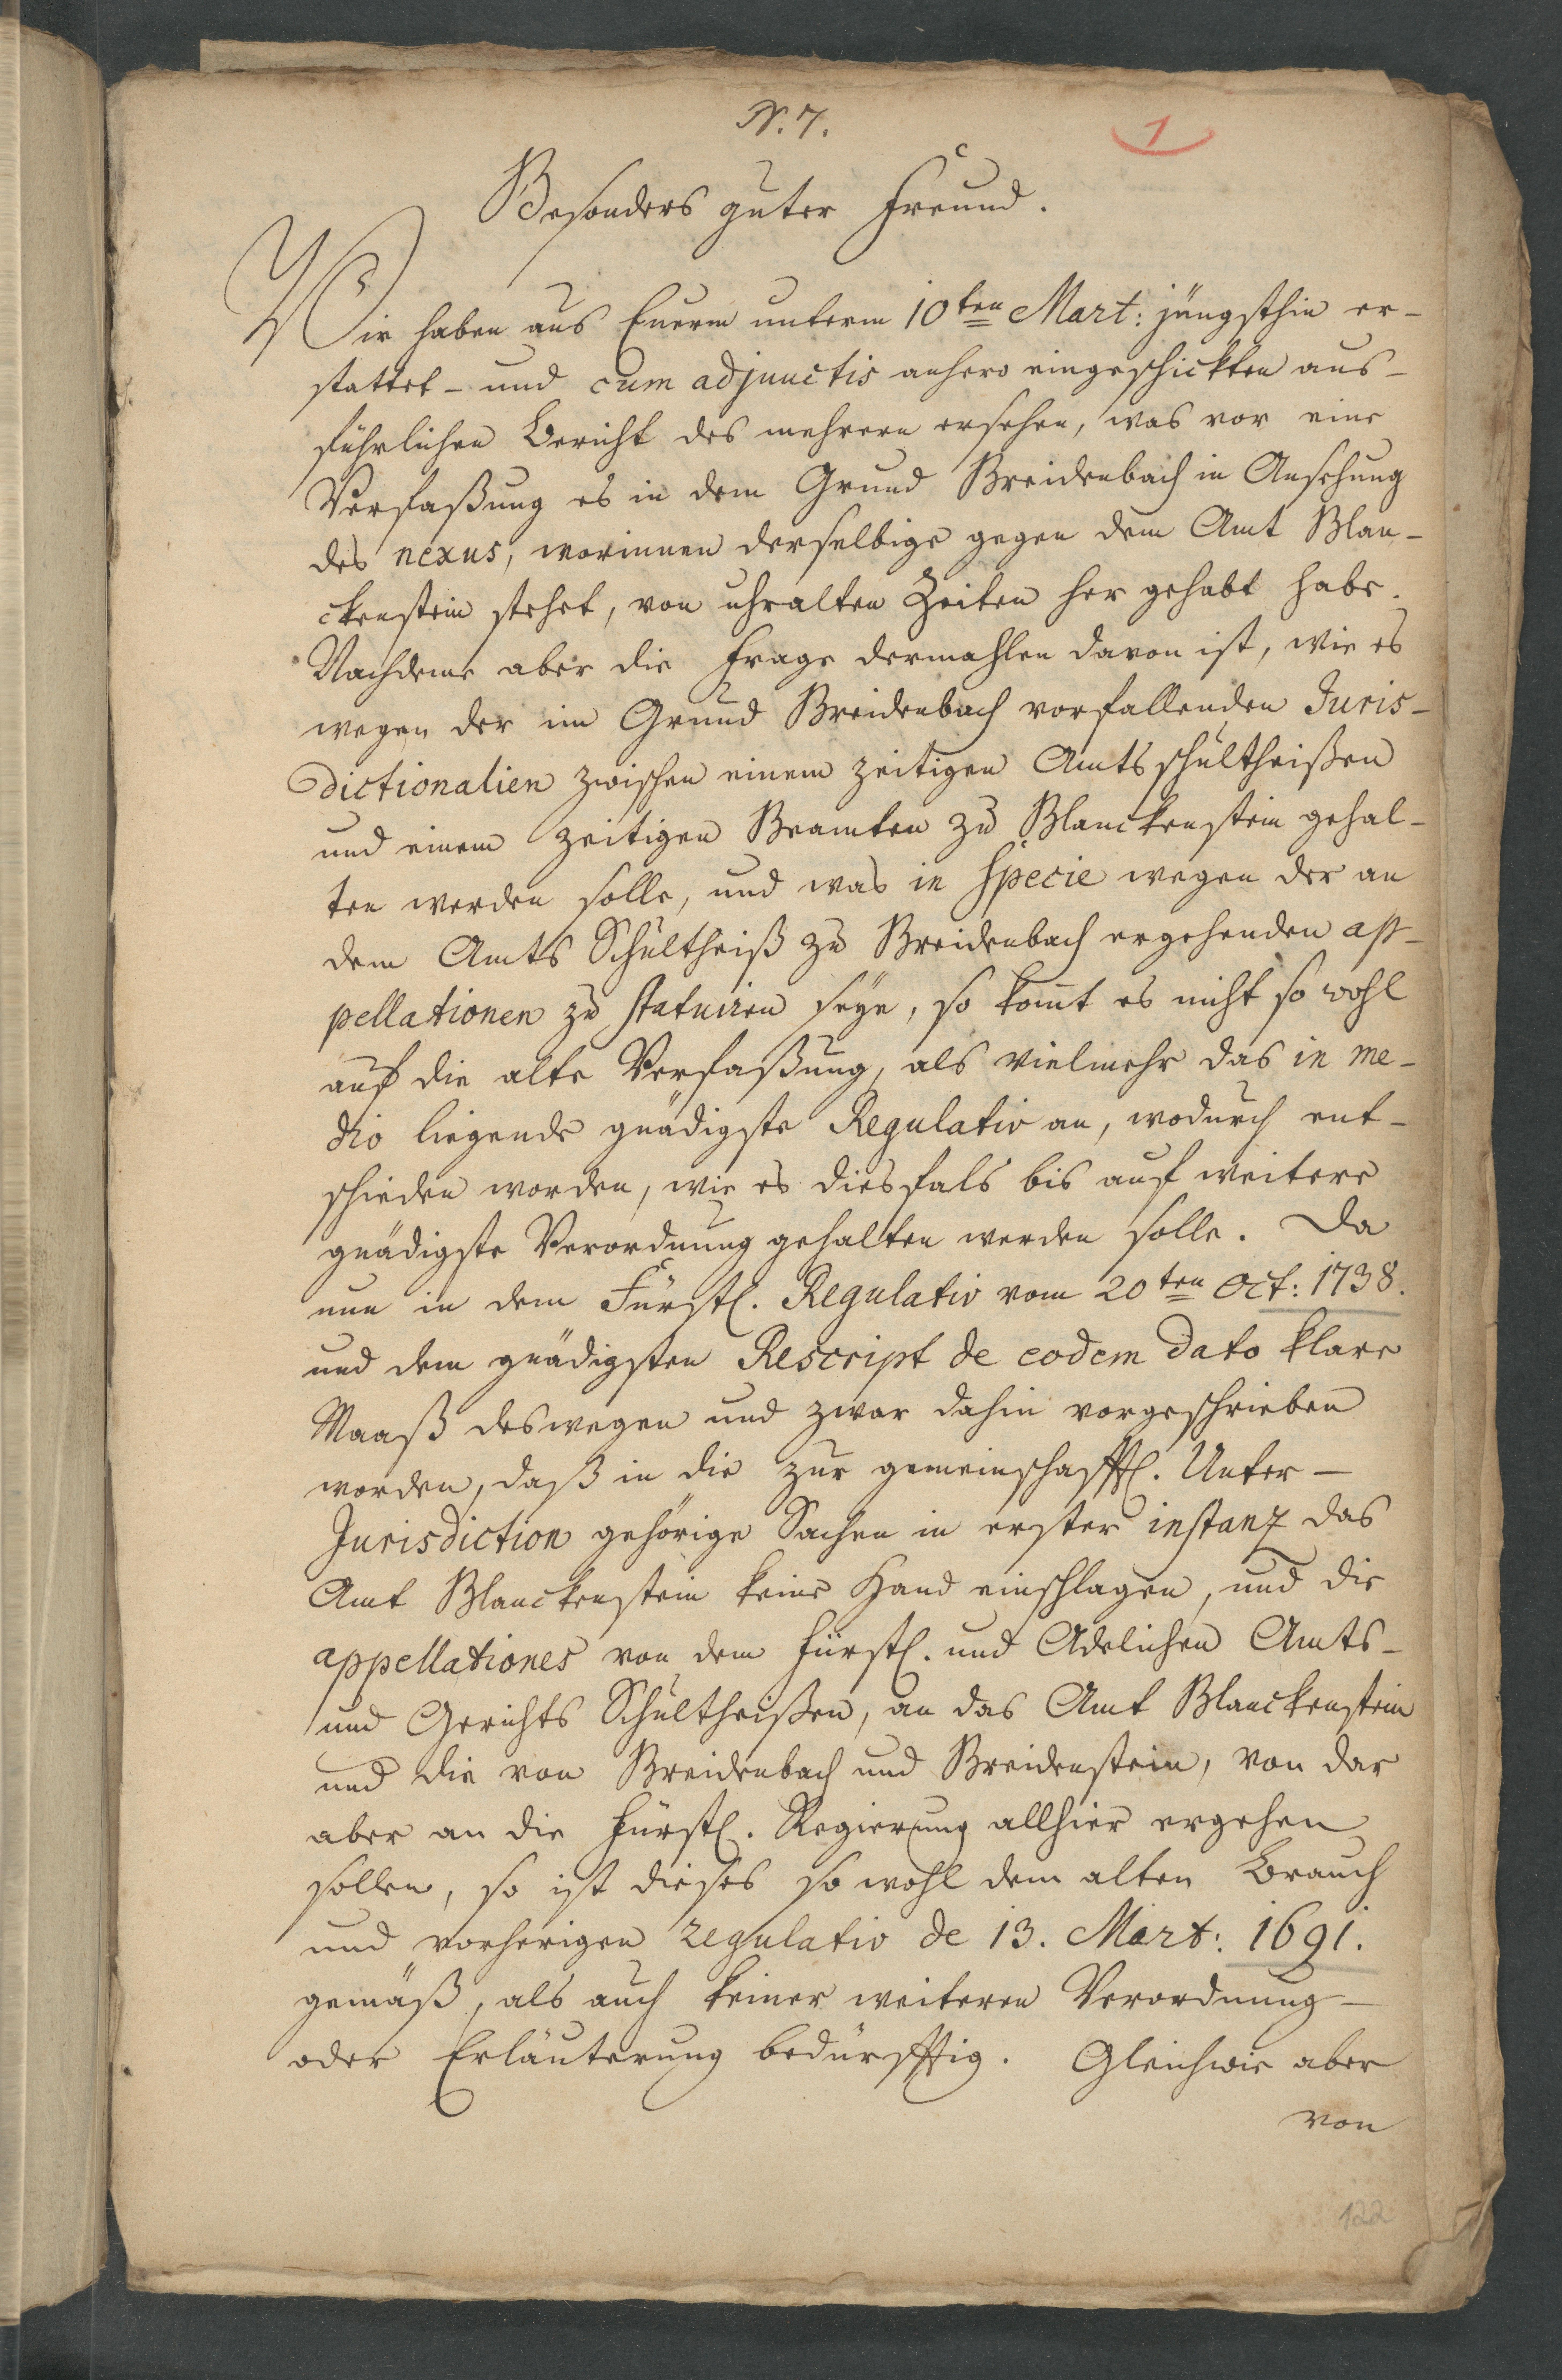 N. 7.
1
Besonders guter Freund.
Wir haben aus Euerm unterm 10ten Mart: jüngsthin er-
stattet- und cum adjunctis anhero eingeschickten aus-
führlichen Bericht des mehrern ersehen, was vor eine
Verfaßung es in dem Grund Breidenbach in Ansehung
des nexus, worinnen derselbige gegen dem Amt Blan-
ckenstein stehet, von uhralten Zeiten her gehabt habe.
Nachdeme aber die Frage dermahlen davon ist, wie es
wegen der im Grund Breidenbach vorfallenden Juris-
dictionalien zwischen einem zeitigen Amtsschultheißen
und einem zeitigen Beamten zu Blanckenstein gehal-
ten werden solle, und was in Specie wegen der an
dem Amts Schultheiß zu Breidenbach ergehenden ap-
pellationen zu statuiren seye, so komt es nicht so wohl
auf die alte Verfaßung, als vielmehr das in me-
dio liegende gnädigste Regulativ an, wodurch ent-
schieden worden, wie es diesfals bis auf weitere
gnädigste Verordnung gehalten werden solle. Da
nun in dem Fürstl. Regulativ vom 20ten Oct: 1738.
und dem gnädigsten Rescript de eodem dato klare
Maaß deswegen und zwar dahin vorgeschrieben
worden, daß in die zur gemeinschafftl. Unter-
Jurisdiction gehörige Sachen in erster instanz das
Amt Blanckenstein keine Hand einschlagen, und die
appellationes von dem Fürstl. und Adelichen Amts-
und Gerichts Schultheißen, an das Amt Blanckenstein
und die von Breidenbach und Breidenstein, von dar
aber an die Fürstl. Regierung allhier ergehen
sollen, so ist dieses so wohl dem alten Brauch
und vorherigen regulativ de 13. Mart: 1691.
gemäß, als auch keiner weiteren Verordnung-
oder Erläuterung bedürfftig. Gleichwie aber
von
122